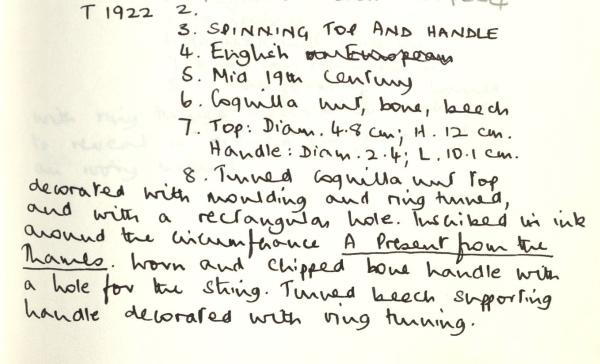 T 1922 2.
3. SPINNING TOP AND HANDLE
4. English
5. Mid 19th Century
6. Coquilla nut, bone, beech
7. Top: Diam. 4.8 cm; H. 12 cm.
Handle: Diam. 2.4; L. 10.1 cm.
8. Turned coquilla nut top
decorated with moulding and ring turned,
and with a rectangular hole. Inscribed in ink
around the circumference A Present from the
Thames. Worn and chipped bone handle with
a hole for the string. Turned beech supporting
handle decorated with ring turning.